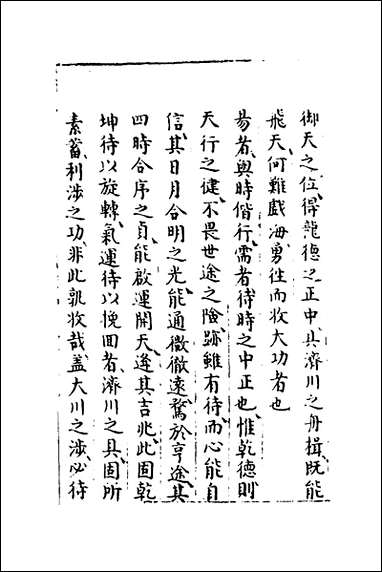 御天之位、得龍德之正中、具濟川之舟楫、既能
飛天、何難戲海、勇往而收大功者也
易者、與時偕行、需者待時之中正也、惟乾德則
天行之健、不畏世途之險、跡雖有待、而心能自
信、其日月合明之光、能通微徹遠、騖於亨途、其
四時合序之貞、能啟運開天、逢其吉兆、此固乾
坤待以旋轉、氣運待以挽回者、濟川之具、固所
素蓄、利涉之功、非此孰收哉、蓋大川之涉、必待